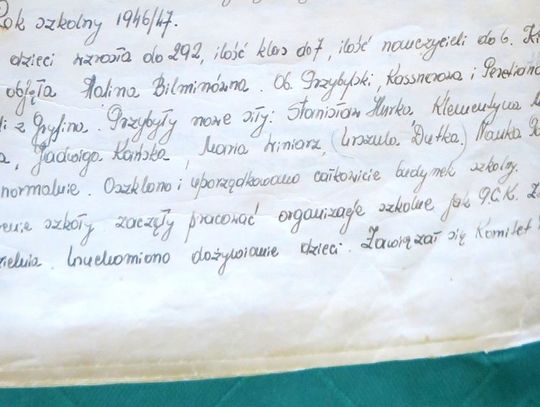 Rok szkolny 1946/47.
dzieci wzrosła do 292, ilość klas do 7, ilość nauczycieli do 6. Ki
objęła Halina Bilminówna. Ob. Przybylski, Kossnerowa i
i z Gryfina. Przybyły nowe siły: Stanisław Hurko, Klementyna
a, Jadwiga Kańska, Maria Winiarz, (Urszula Dutka.) Nauka
normalnie. Oszklono i uporządkowano całkowicie budynek szkolny.
enie szkoły zaczęły pracować organizacje szkolne jak P.C.K.
zielnia. Uruchomiono dożywianie dzieci. Zawiązał się Komitet